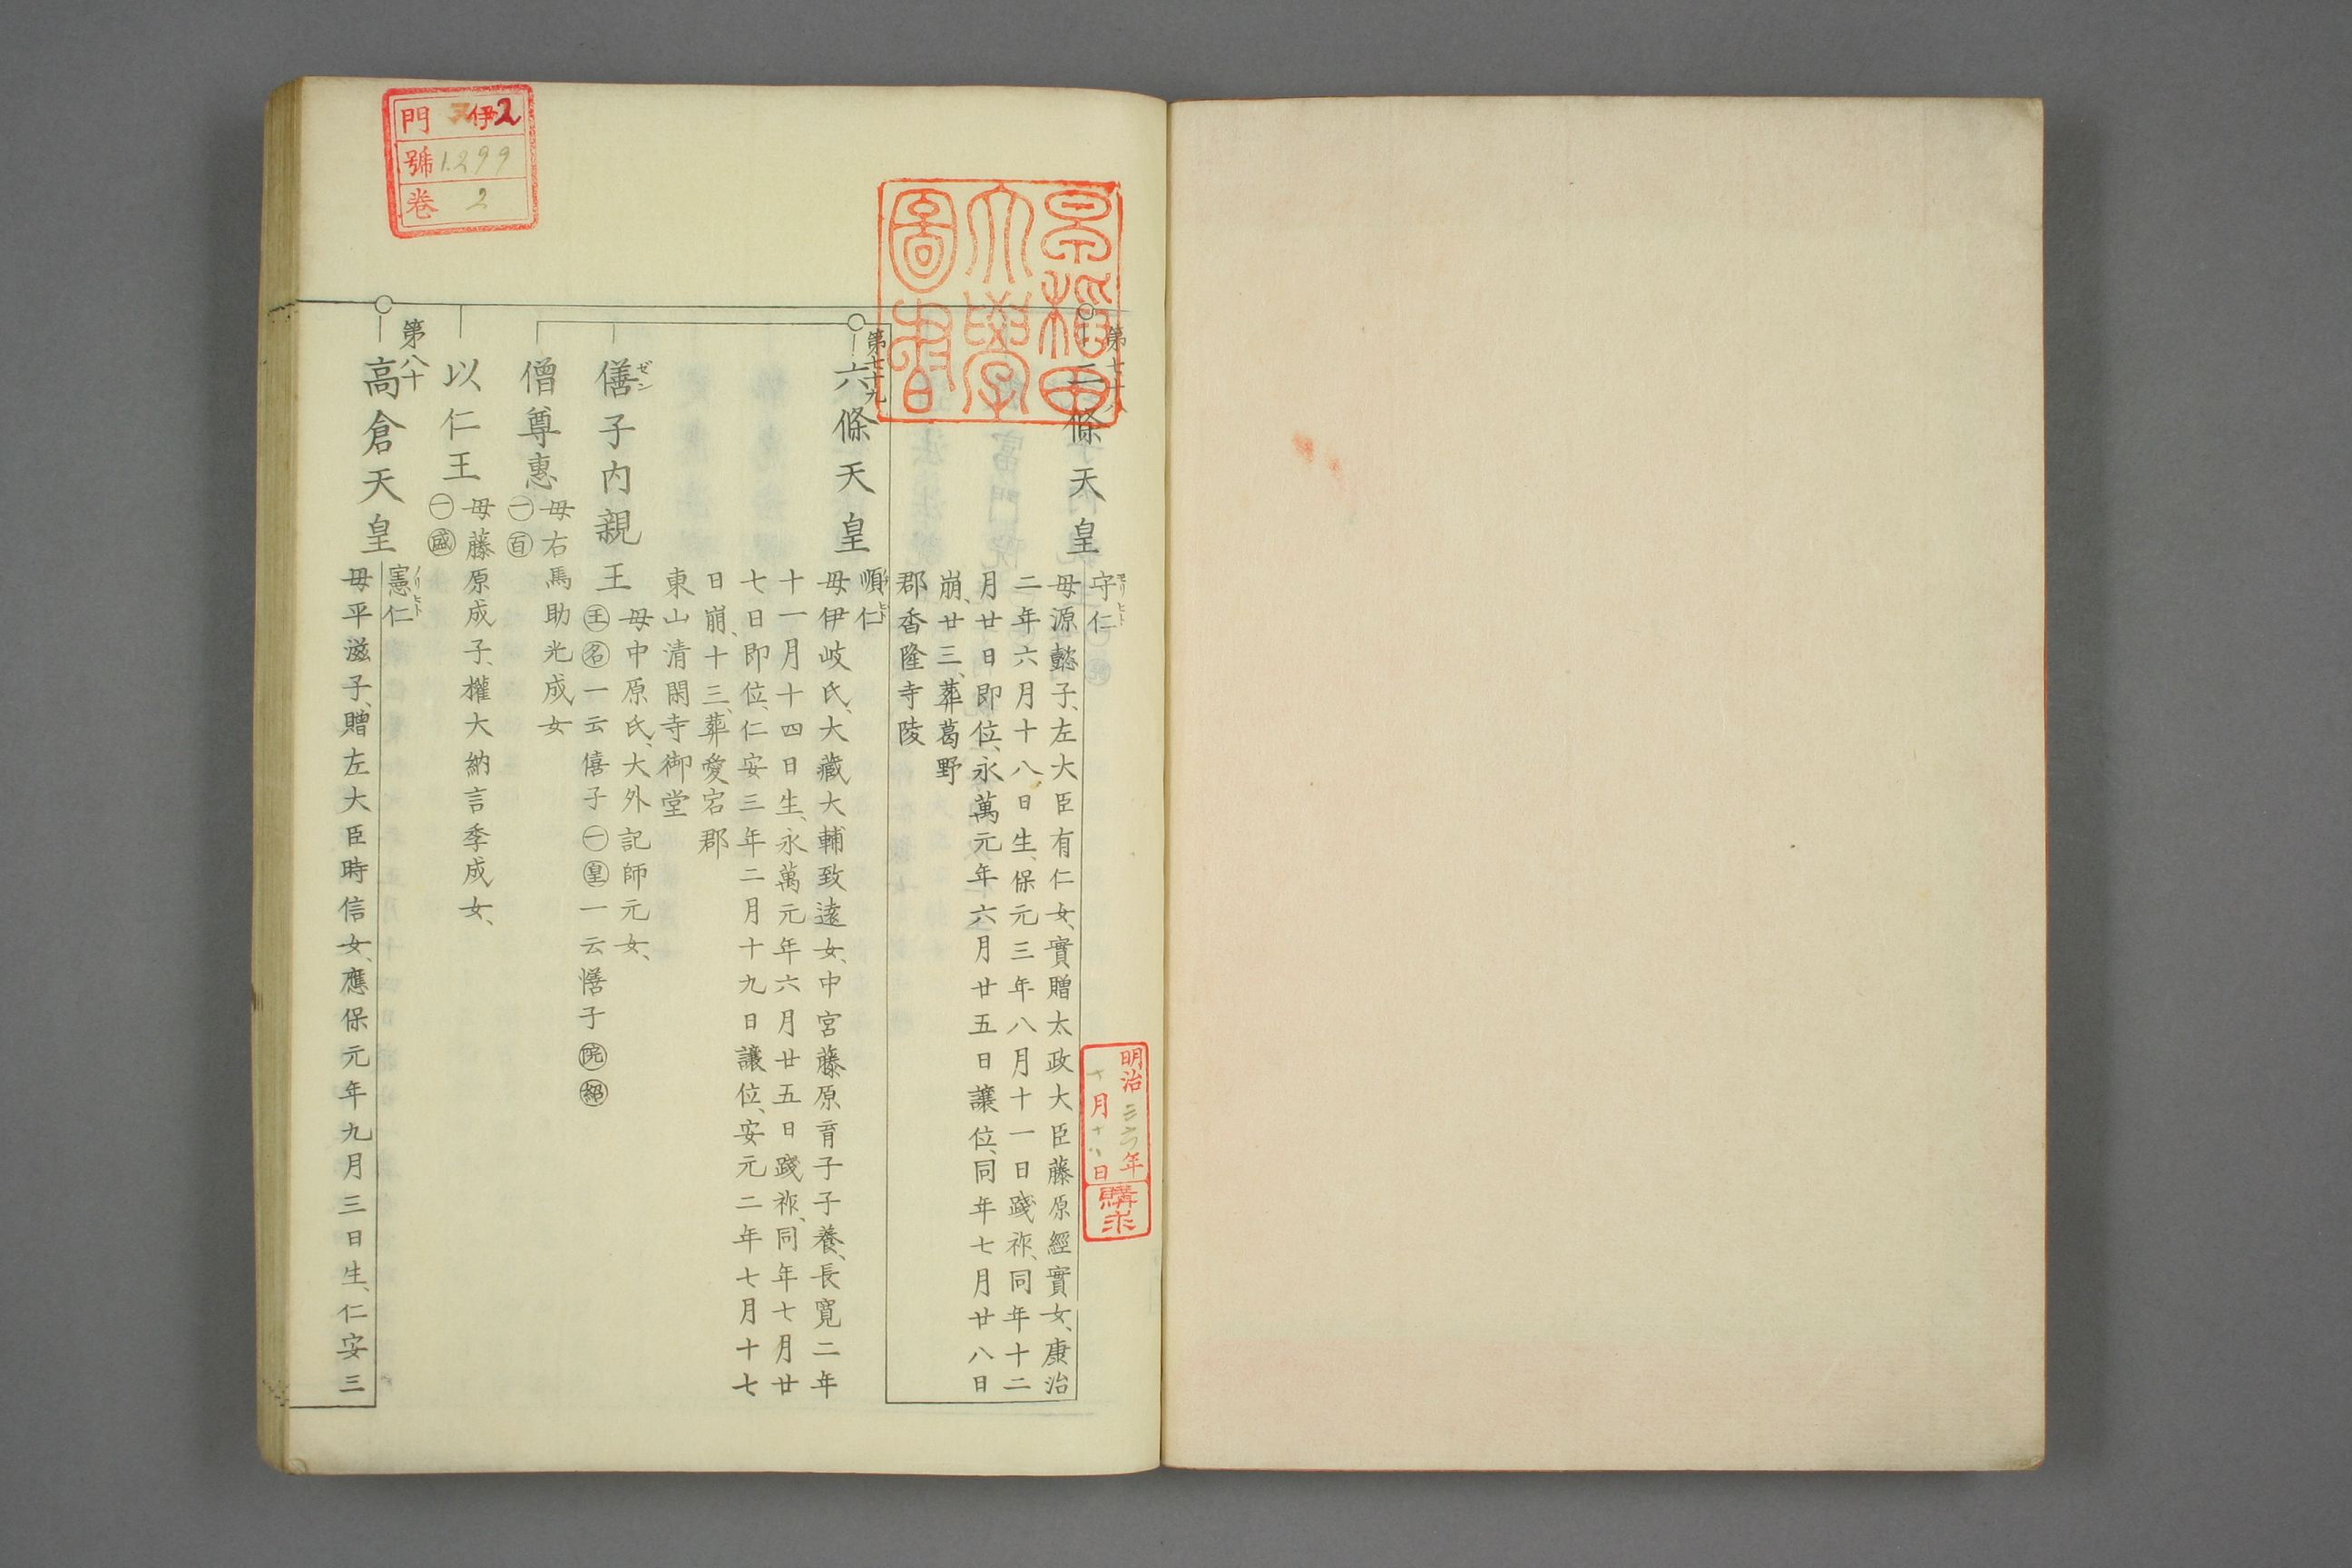 第七十八
二條天皇
守仁
モリヒト
母源懿子、左大臣有仁女、實贈太政大臣藤原經實女、康治
二年六月十八日生、保元三年八月十一日踐祚、同年十二
月廿日即位、永萬元年六月廿五日讓位、同年七月廿八日
崩、廿三、葬葛野
郡香隆寺陵
第七十九
六條天皇
順仁
母伊岐氏、大藏大輔致遠女、中宮藤原育子子養、長寬二年
十一月十四日生、永萬元年六月廿五日踐祚、同年七月廿
七日即位、仁安三年二月十九日讓位、安元二年七月十七
日崩、十三、葬愛宕郡
東山清閑寺御堂
僐子内親王
ゼン
母中原氏、大外記師元女、
王名一云僖子一皇一云憘子院紹
僧尊惠
母右馬助光成女
一百
以仁王
母藤原成子、權大納言季成女、
一盛
第八十
高倉天皇
憲仁
ノリヒト
母平滋子、贈左大臣時信女、應保元年九月三日生、仁安三
早稲田
大學
圖書
明治三六年
十月十八日
購求
門 伊2
號 1299
卷 2